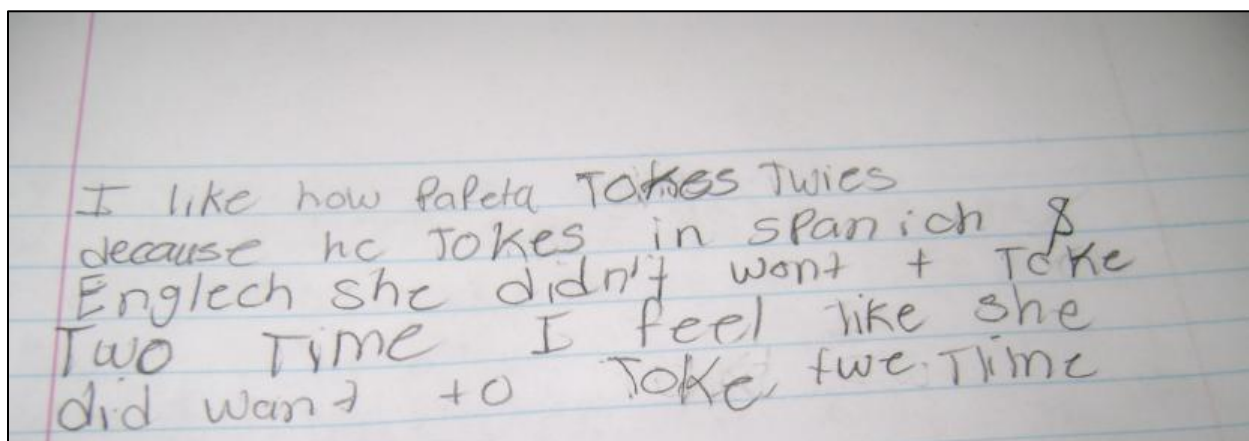 I like how Papeta Tokes Twies
decause he Tokes in spanich &
Englech she didn't wont t Toke
Two Time I feel like she
did want to Toke twe Time